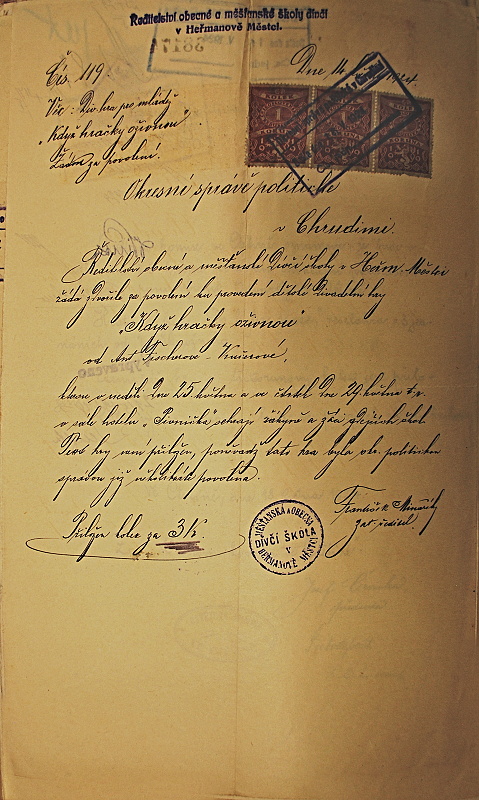 Ředitelství obecné a měšťanské školy dívčí
v Heřmanově Městci.
Čís. 119.
Dne 14.
Věc: Div. hra pro mládež
"Když hračky ožívnou"
Žádá za povolení.
Okresní správě politické
v Chrudimi.
Ředitelství obecné a měšťanské dívčí školy v Heřm. Městci
žádá zdvořile za povolení ku provedení dětské divadelní hry
"Když hračky ožívnou"
od Ant. Fischerové - Kučerové,
kterou v neděli dne 25. května a ve čtvrtek dne 29. května t. r.
v sále hotelu "Pernička" sehrají žákyně a žáci zdejších škol.
Text hry není přiložen, poněvadž tato hra byla okr. politickou
správou již několikráte povolena.
Přiložen kolek za 3 Kč
František
řed. učitel.
MĚŠŤANSKÁ A OBECNÁ
DÍVČÍ ŠKOLA
V
HEŘMANOVĚ MĚSTCI